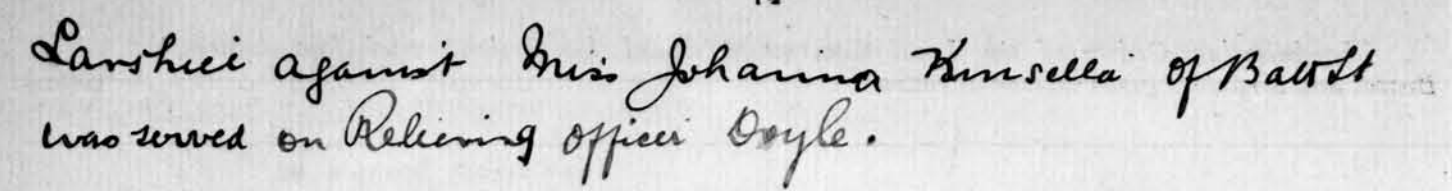 against Miss Johanna Kinsella of
was served on Relieving Officer Doyle.